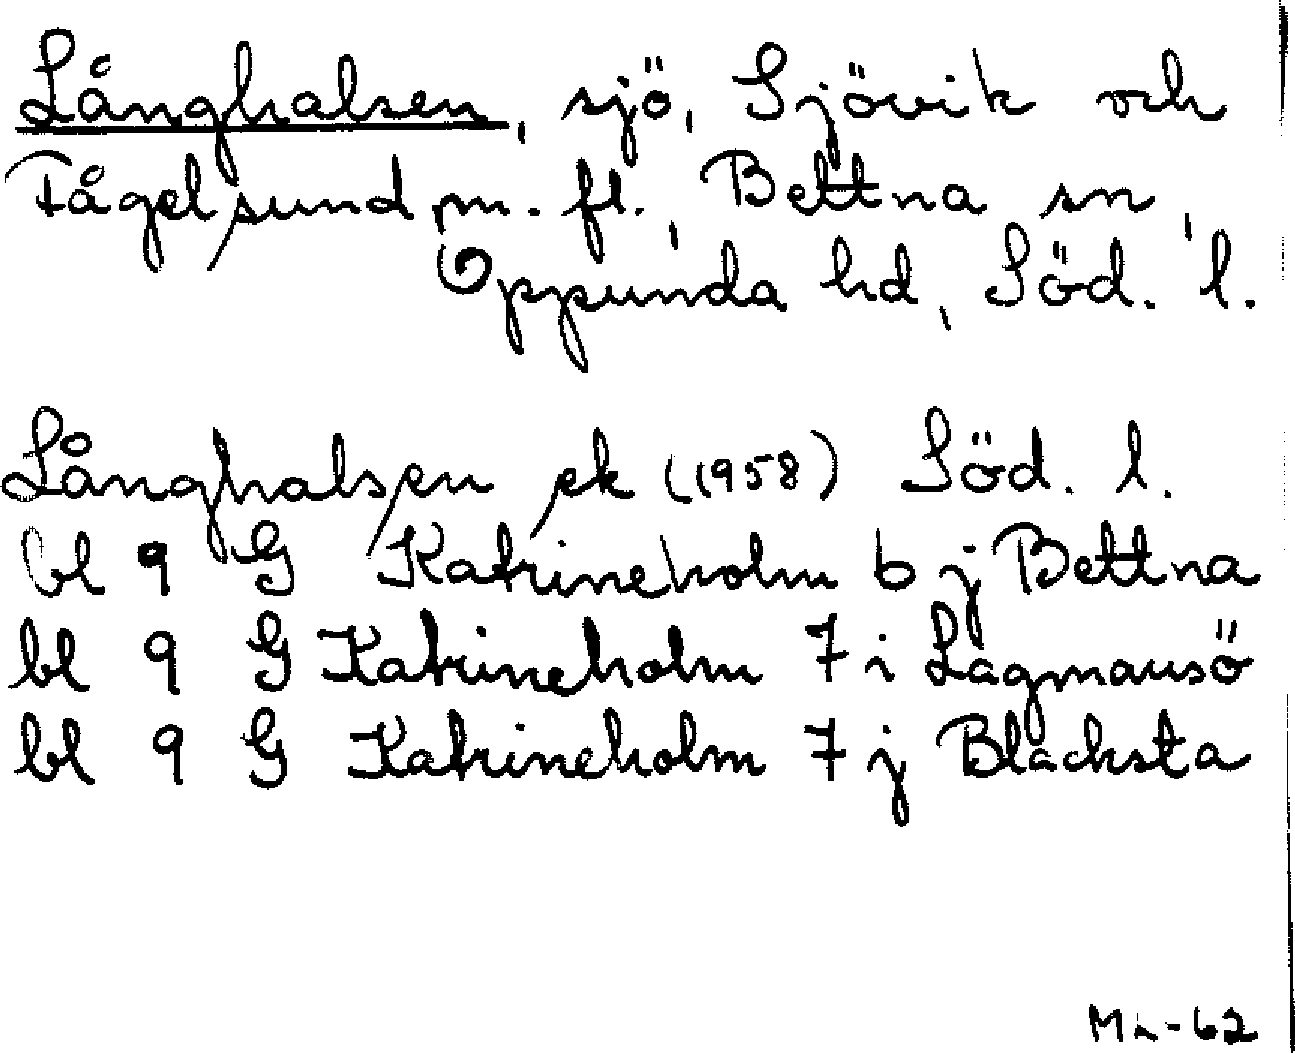 Långhalsen, sjö, Sjövik och
Fågelsund m. fl., Bettna sn,
Oppunda hd, Söd. l.
Långhalsen ek (1958) Söd. l.
bl 9 G Katrineholm 6 j Bettna
bl 9 G Katrineholm 7 i Lagmansö
bl 9 G Katrineholm 7 j Blacksta